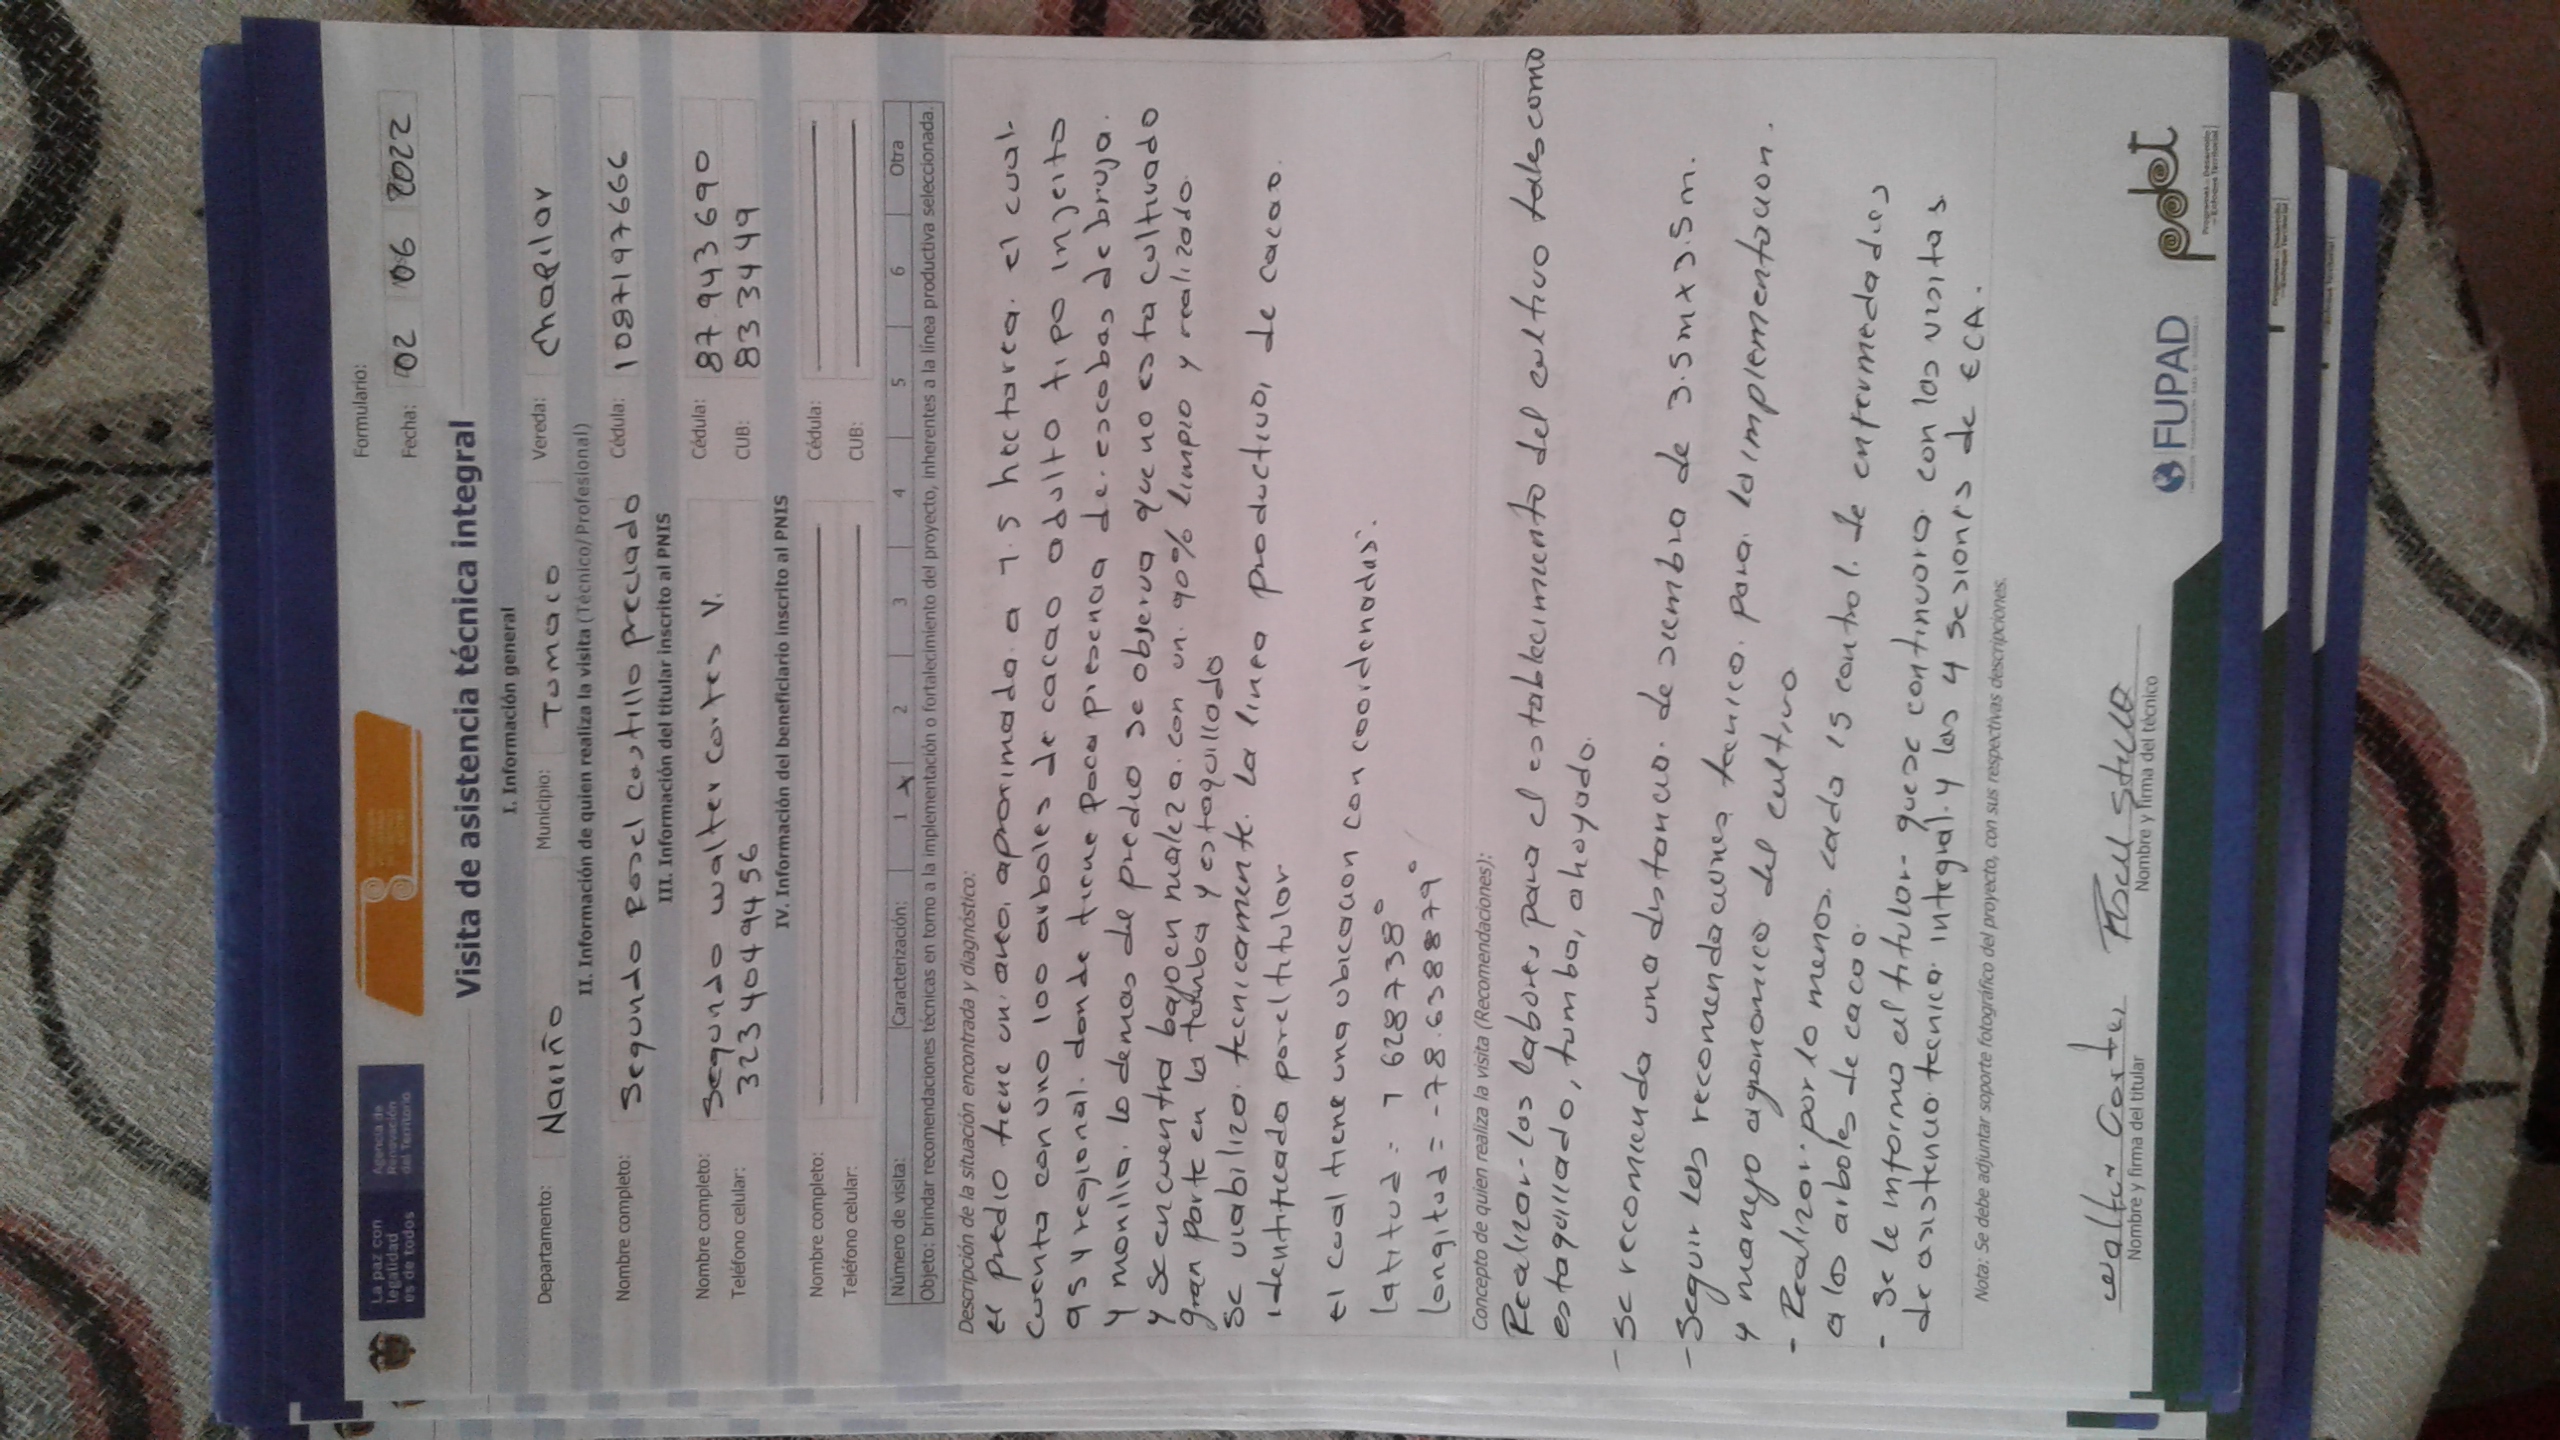 La paz con
legalidad
es de todos
Agencia de
Renovación
del Territorio
Formulario:
Fecha: 02 06 2022
Visita de asistencia técnica integral
I. Información general
Departamento: Nariño Municipio: Tumaco Vereda: Chapilar
II. Información de quien realiza la visita (Técnico/Profesional)
Nombre completo: Segundo Rosel castillo preciado Cédula: 1087197666
III. Información del titular inscrito al PNIS
Nombre completo: Segundo walter cortes V. Cédula: 87.943690
Teléfono celular: 3234049456 CUB: 833449
IV. Información del beneficiario inscrito al PNIS
Nombre completo: Cédula:
Teléfono celular: CUB:
Número de visita: Caracterización: 1 x 2 3 4 5 6 Otra
Objeto: brindar recomendaciones técnicas en torno a la implementación o fortalecimiento del proyecto, inherentes a la línea productiva seleccionada.
Descripción de la situación encontrada y diagnóstico:
el predio tiene un area aproximada a 1.5 hectarea. el cual.
cuenta con uno 100 arboles de cacao adulto tipo injerto
as y regional. donde tiene poca presencia de. escobas de bruja.
y monilia. lo demas del predio se observa que no esta cultivado
y se encuentra bajo en maleza. con un. 90% limpio y realizado.
gran parte en la tumba y estaquillado
se viabilizo. tecnicamente. la linea productiva, de cacao.
identificada por el titular
el cual tiene una ubicacion con coordenadas:
latitud = 1 628738°
longitud = -78.638879°
Concepto de quien realiza la visita (Recomendaciones):
Realizar las labores para el establecimiento del cultivo tales como
estaquillado, tumba, ahoyado.
- Se recomienda una distancia. de siembra de 3.5m x 3.5m.
- Seguir las recomendaciones tecnico. para. la implementacion.
y manejo agronomico del cultivo
- Realizar por lo menos. cada 15 control. de enfermedades
a los arboles de cacao.
- Se le informo al titular que se continuara con las visitas
de asistencia tecnica integral. y las 4 sesiones de ECA.
Nota: Se debe adjuntar soporte fotográfico del proyecto, con sus respectivas descripciones.
walter Cortes
Nombre y firma del titular
Nombre y firma del técnico
FUPAD
pdet
Programas de Desarrollo
con Enfoque Territorial